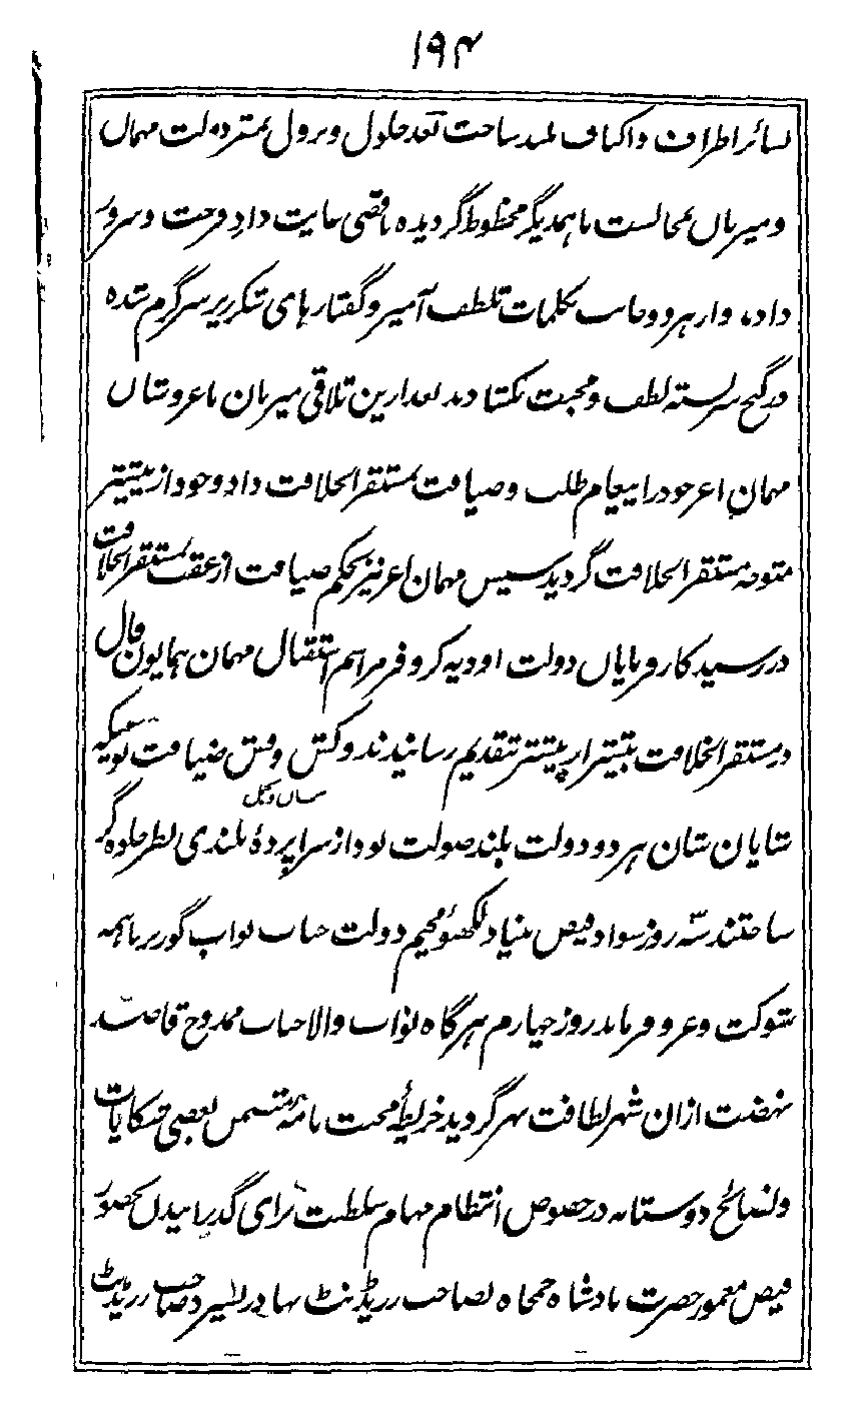 ۱۹۴
بسائر اطراف و اکناف بلند ساخت بعد حلول و نزول بمقر دولت مهمان
و میزبان بمجالست با همدیگر محظوظ گردیده باقصی غایت داد فرحت و سرور
داده و از هر دو جانب بکلمات تلطف آمیز و گفتارهای شکرریز سرگرم شده
در گنج سربسته لطف و محبت بکشادند بعد ازین تلاقی میزبان با عز و شان
مهمان اعز خود را پیغام طلب و ضیافت بمستقر الخلافت داد و خود از پیشتر
متوجه مستقر الخلافت گردید سپس مهمان اعز نیز بحکم ضیافت از عقب بمستقر الخلافت
در رسید کارفرمایان دولت اودیه کروفر مراسم استقبال مهمان همایون فال
در مستقر الخلافت بیشتر از پیشتر بتقدیم رسانیدند و کشن وفش ضیافت نوعیکه
شایان شان هر دو دولت بلند صولت بود از سراپردهٔ بلندی بظر جلوه گر
ساختند سه روز سواد فیض بنیاد لکهنؤ مخیم دولت جناب نواب گورنر با همه
شوکت و عز و فر ماند روز چهارم هرگاه نواب والا جناب ممدوح قاصد
نهضت ازان شهر لطافت بهر گردید خریطهٔ محبت نامه متضمن بعضی شکایات
و نصائح دوستانه در خصوص انتظام مهام سلطنت برای گذرانیدن بحضور
فیض معمور حضرت بادشاه جمجاه بصاحب رزیڈنٹ بهادر سپرد صاحب رزیڈنٹ